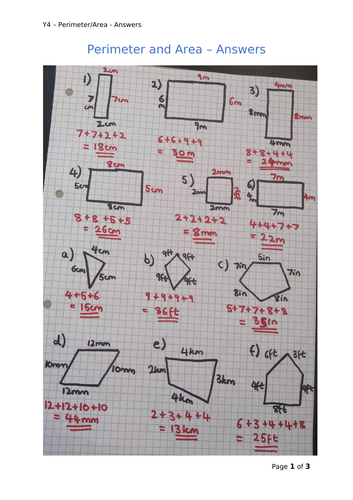 Y4 – Perimeter/Area - Answers
Perimeter and Area – Answers
1) 2cm
7cm 7cm
2cm
7+7+2+2
= 18cm
2) 9m
6m 6m
9m
6+6+9+9
= 30m
3) 4mm
8mm 8mm
4mm
8+8+4+4
= 24mm
4) 8cm
5cm 5cm
8cm
8+8+5+5
= 26cm
5) 2mm
2mm 2mm
2mm
2+2+2+2
= 8mm
6) 7m
4m 4m
7m
4+4+7+7
= 22m
a) 4cm
6cm 5cm
4+5+6
= 15cm
b) 9ft 9ft
9ft 9ft
9+9+9+9
= 36ft
c) 5in
7in 7in
8in 8in
5+7+7+8+8
= 35in
d) 12mm
10mm 10mm
12mm
12+12+10+10
= 44mm
e) 4km
2km 3km
4km
2+3+4+4
= 13km
f) 6ft 3ft
4ft 4ft
8ft
6+3+4+4+8
= 25ft
Page 1 of 3